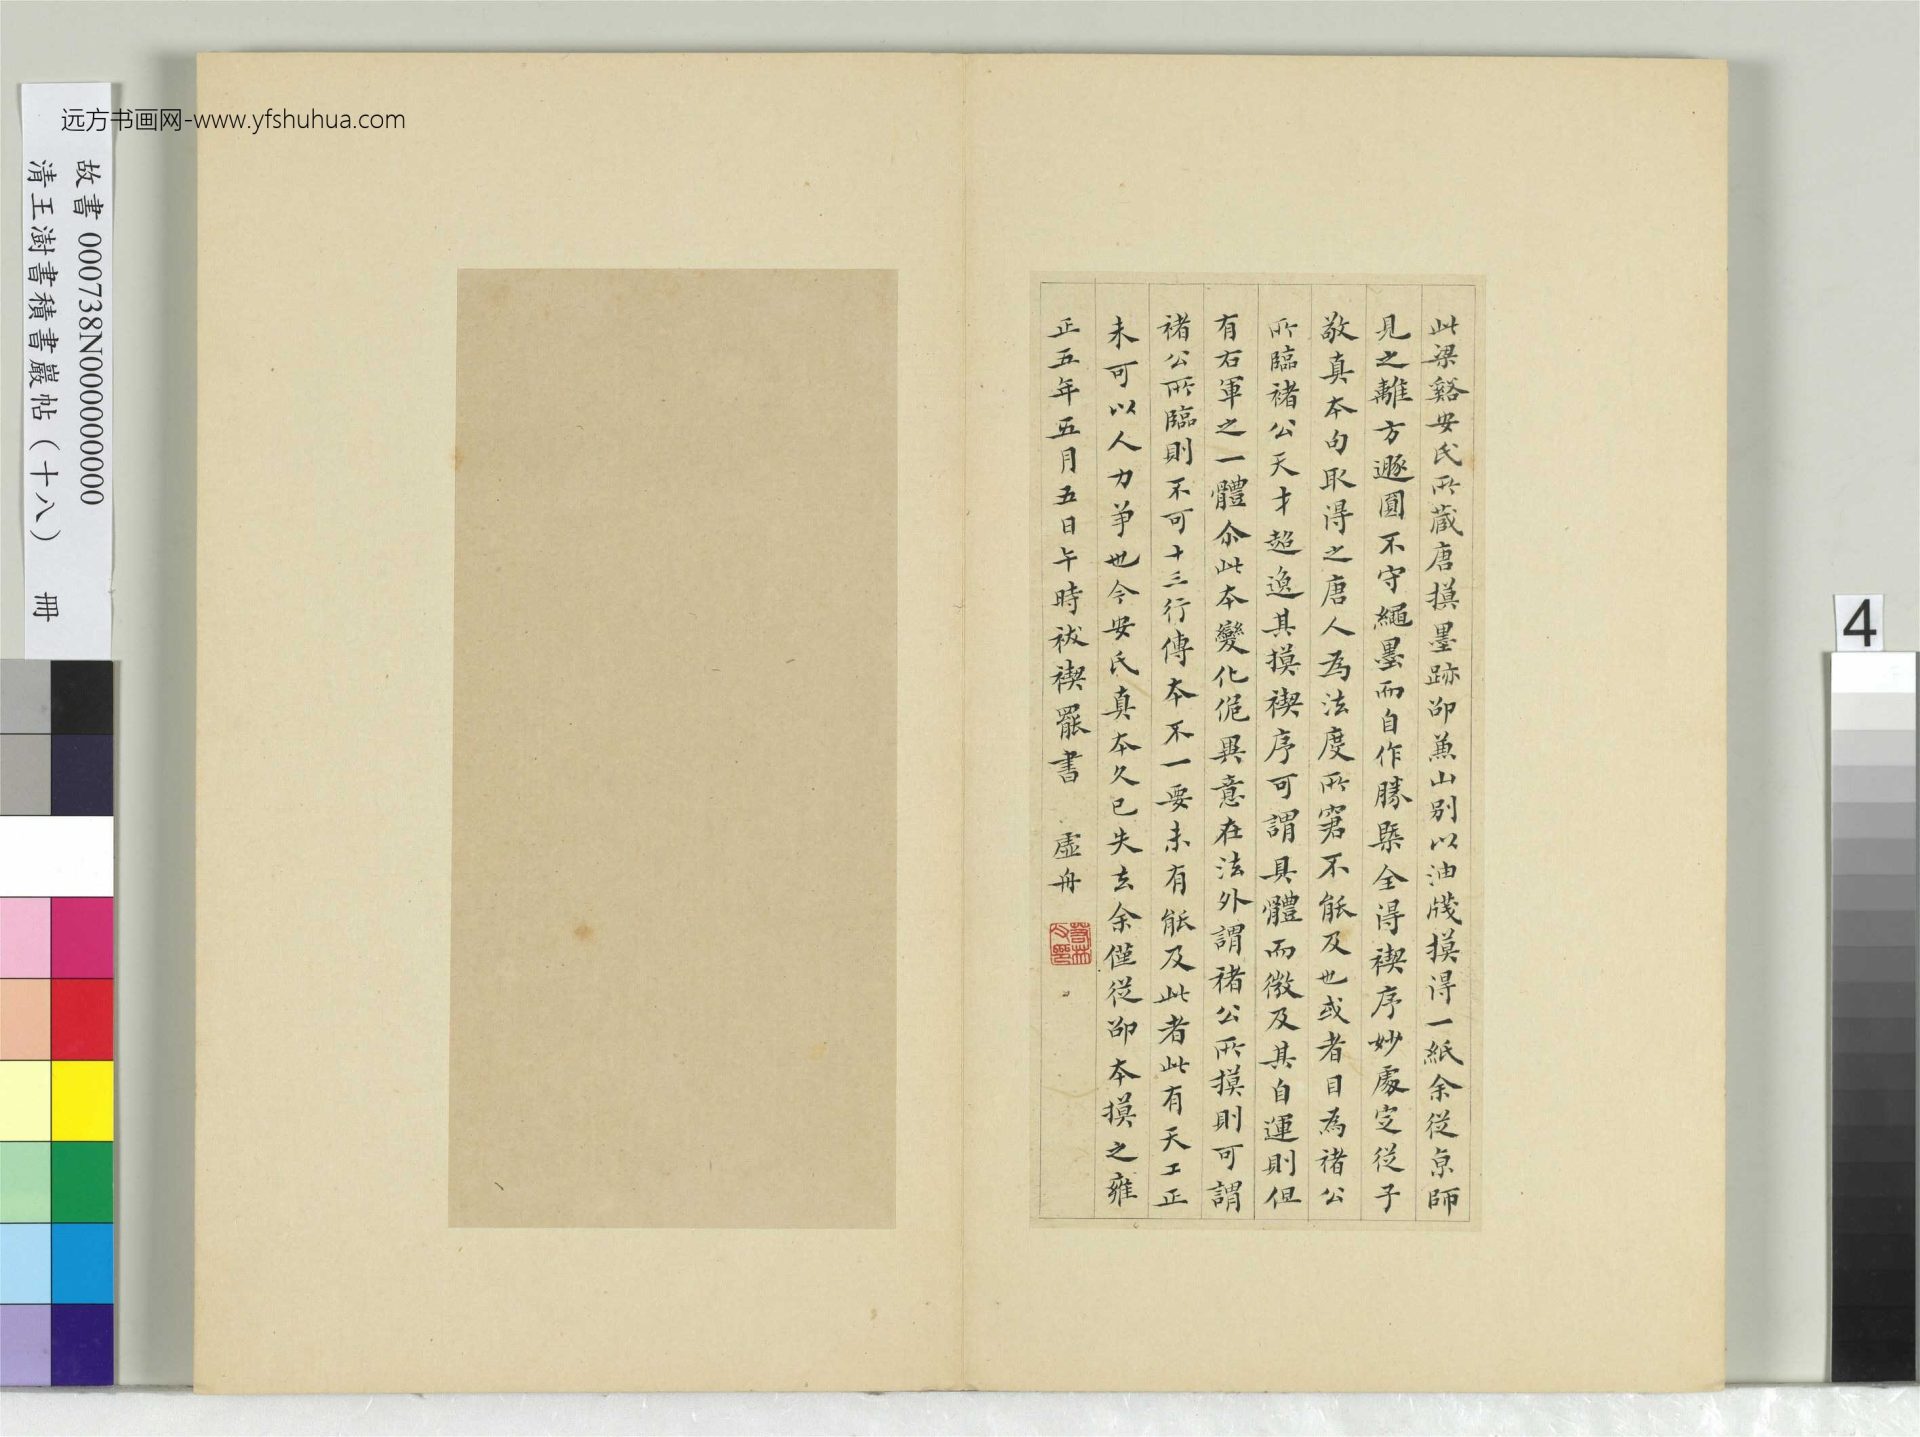 远方书画网-www.yfshuhua.com
故書 000738N000000000
清王澍書積書巖帖（十八） 冊
4
此梁谿安氏所藏唐摸墨跡邵蕉山别以油牋摸得一紙余從京師
見之離方遯圓不守繩墨而自作勝槩全得禊序妙處定從子
敬真本句取得之唐人為法度所窘不能及也或者目為褚公
所臨褚公天才超逸其摸禊序可謂具體而微及其自運則但
有右軍之一體尒此本變化佹異意在法外謂褚公所摸則可謂
褚公所臨則不可十三行傳本不一要未有能及此者此有天工正
未可以人力爭也今安氏真本久已失去余僅從邵本摸之雍
正五年五月五日午時祓禊罷書 虛舟